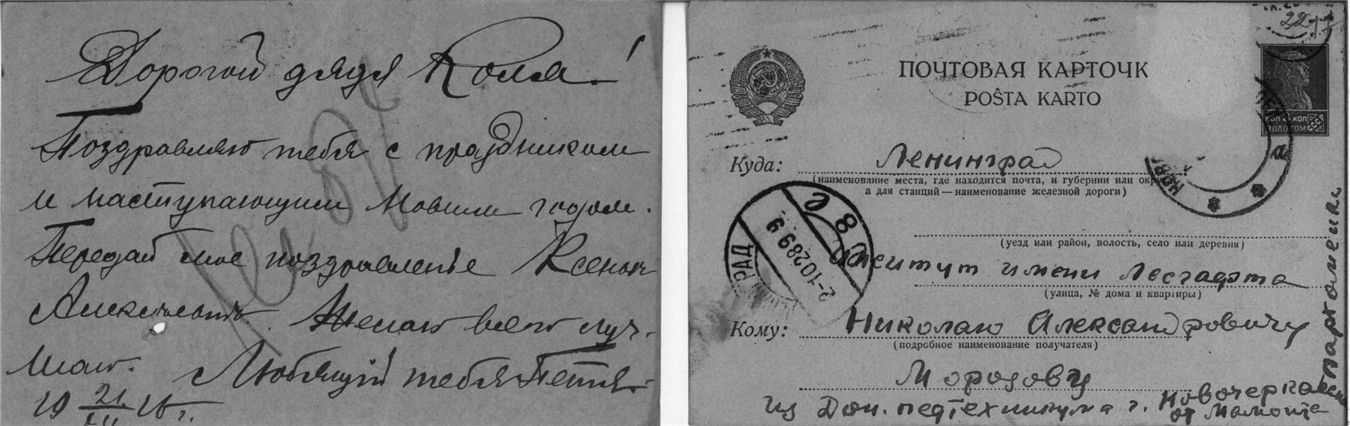 Дорогой дядя Коля!
Поздравляю тебя с праздником
и наступающим Новым годом.
Передай мое поздравленье Ксении
Алексеевне. Желаю всего луч-
шаго.
Любящій тебя Петя.
ПОЧТОВАЯ КАРТОЧК
POŜTA KARTO
Куда: Ленинград
(наименование места, где находится почта, и губернии или окр
а для станций — наименование железной дороги)
(уезд или район, волость, село или деревня)
имени Лесгафта
(улица, № дома и квартиры)
Кому: Николаю Александровичу
(подробное наименование получателя)
Морозову
из Дон. педтехникума г. Новочеркасск
Пархоменко
РАД
2-10 28 9 9
8
22